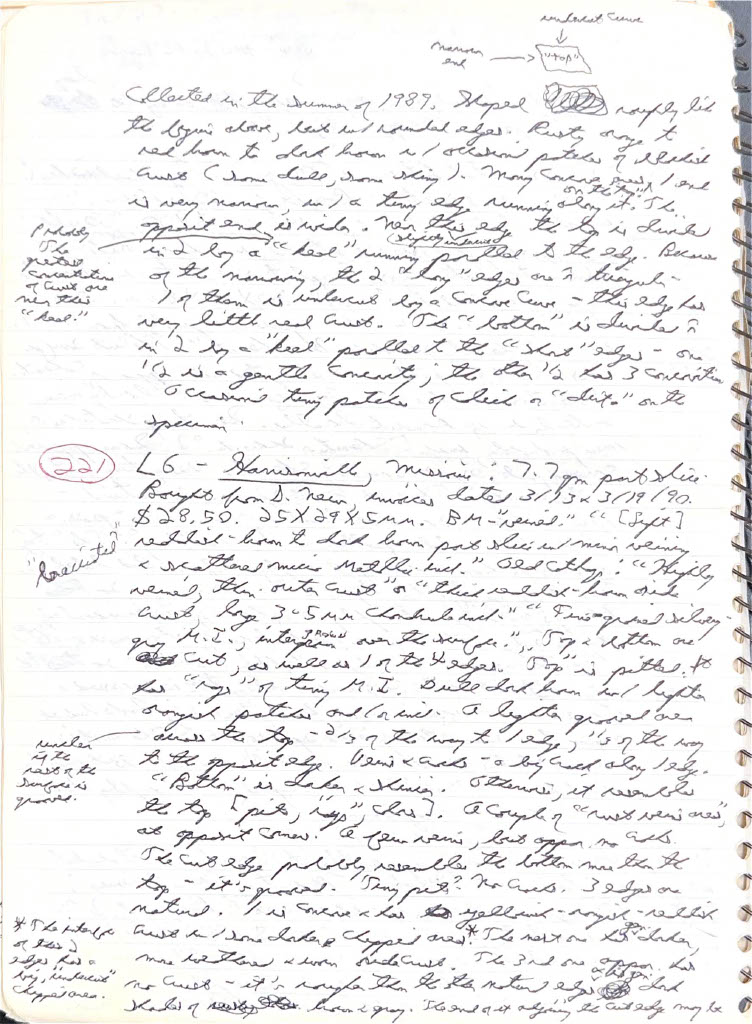 undercut curve
narrow end
"top"
Collected in the summer of 1989. Shaped roughly like
the figure above, but w/ rounded edges. Rusty orange to
red brown to dark brown w/ occasional patches of blackish
crust (some dull, some shiny). Many concave areas on the "top". 1 end
is very narrow, w/ a tiny edge running along it. The
opposite end is wider. Near this edge the top is divided
in 2 by a "keel" running (slightly indented) parallel to the edge. Because
of the narrowing, the 2 "long" edges are triangular.
1 of them is undercut by a concave curve - this edge has
very little red crust. The "bottom" is divided
in 2 by a "keel" parallel to the "short" edges - one
1/2 is a gentle concavity; the other 1/2 has 3 concavities
Occasional tiny patches of caliche or "dirt" on the
specimen.
Probably
the
greatest
concentrations
of crust are
near this
"keel."
221
L6 - Harrisonville, Missouri: 7.7 gm part slice.
Bought from D. New, invoices dated 3/13 & 3/19/90.
$28.50. 25X29X5mm. BM-"veined." "[3 gift]
reddish-brown to dark brown part slice w/ minor veining
& scattered micro metallic incl." Old cthg: "Highly
veined, thin outer crust" & "thick reddish-brown oxide
crust, large 3-5 mm chondrule incl." "Fine-grained silvery-
gray M.I., interspersed over the surface." Top & bottom are
cut, as well as 1 of the 4 edges. "Top" is pitted. It
has "rays" of tiny M.I. Dull dark brown w/ lighter
orangish patches and/or incl. A lighter grooved area
across the top - 2/3 of the way to 1 edge, 1/3 of the way
to the opposite edge. Veins & cracks - a big crack along 1 edge.
"Bottom" is darker & shinier. Otherwise, it resembles
the top [pits, "rays", color]. A couple of "rust veins areas",
at opposite corners. A few veins, but appar. no cracks.
The cut edge probably resembles the bottom more than the
top - it's grooved. Tiny pits? No cracks. 3 edges are
natural. 1 is concave & has yellowish-orangish-reddish
crust w/ some darker chipped areas.* The next one has darker,
more weathered & worn oxide crust. The 3rd one appar. has
no crust - it's rougher than the the natural edges & has dark
shades of brown & gray. The end of it adjoining the cut edge may be
"brecciated"
smaller
is the
rest of the
surface is
grooved.
* The interface
of these 2
edges has a
big, "undercut"
chipped area.